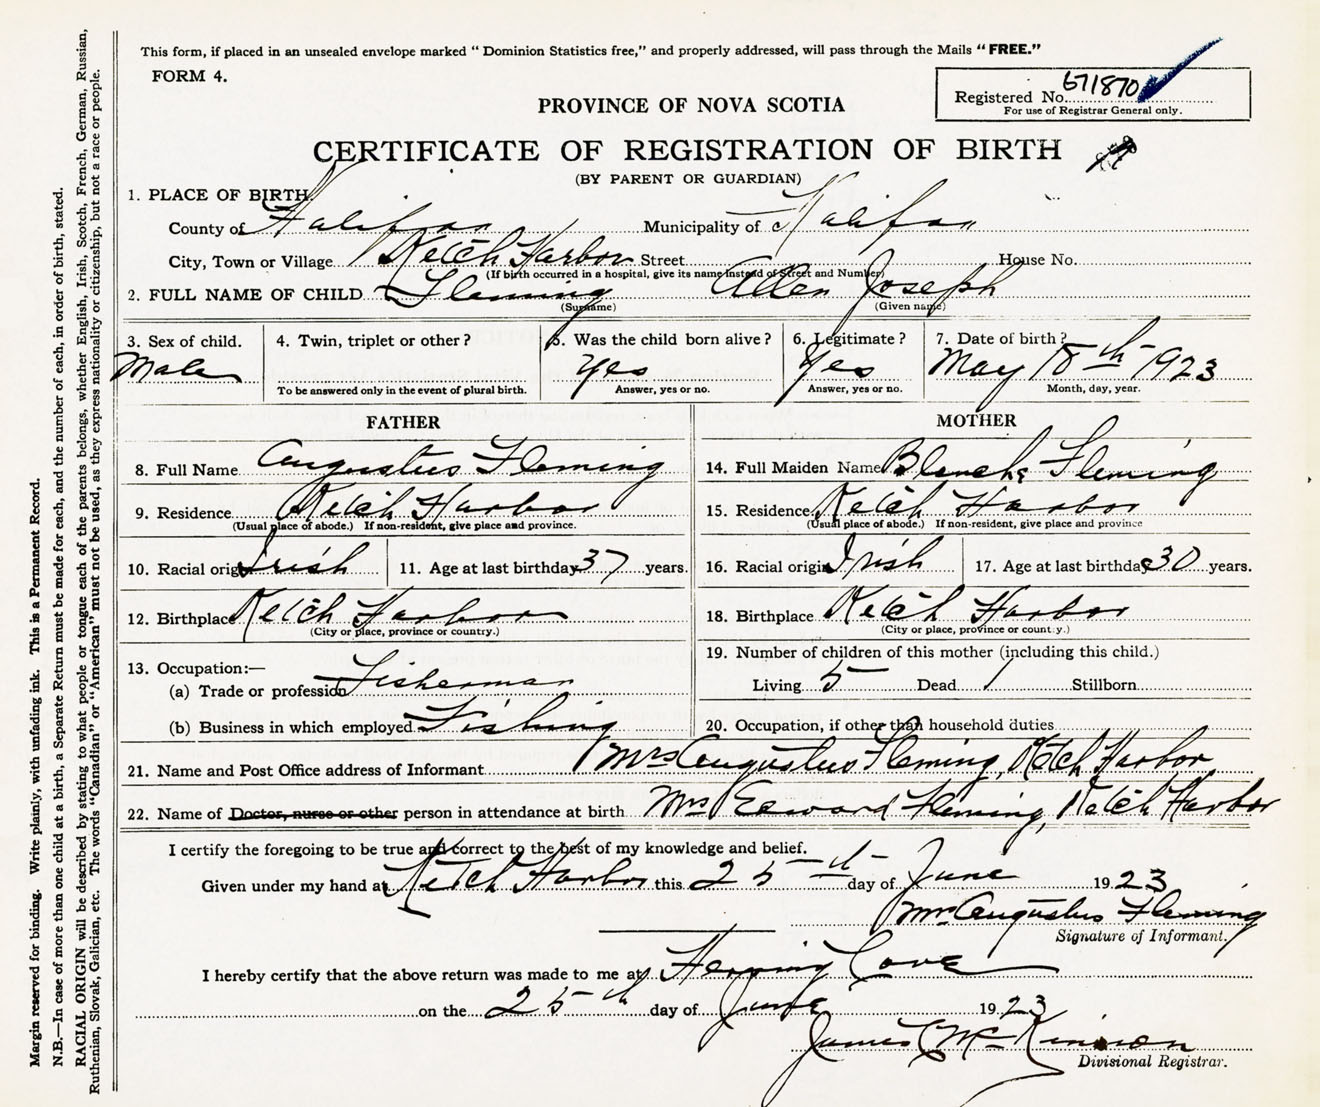 This form, if placed in an unsealed envelope marked " Dominion Statistics free," and properly addressed, will pass through the Mails "FREE."
FORM 4.
Registered No. 671870
For use of Registrar General only.
PROVINCE OF NOVA SCOTIA
CERTIFICATE OF REGISTRATION OF BIRTH
(BY PARENT OR GUARDIAN)
1. PLACE OF BIRTH
County of Halifax Municipality of Halifax
City, Town or Village Ketch Harbor Street House No.
(If birth occurred in a hospital, give its name instead of Street and Number)
2. FULL NAME OF CHILD Fleming Allen Joseph
(Surname) (Given name)
3. Sex of child. 4. Twin, triplet or other ? 5. Was the child born alive ? 6. Legitimate ? 7. Date of birth ?
Male Yes Yes May 18th 1923
To be answered only in the event of plural birth. Answer, yes or no. Answer, yes or no. Month, day, year.
FATHER MOTHER
8. Full Name Augustus Fleming 14. Full Maiden Name Blanche Fleming
9. Residence Ketch Harbor 15. Residence Ketch Harbor
(Usual place of abode.) If non-resident, give place and province. (Usual place of abode.) If non-resident, give place and province
10. Racial origin Irish 11. Age at last birthday 37 years. 16. Racial origin Irish 17. Age at last birthday 30 years.
12. Birthplace Ketch Harbor 18. Birthplace Ketch Harbor
(City or place, province or country.) (City or place, province or country.)
13. Occupation:— 19. Number of children of this mother (including this child.)
(a) Trade or profession Fisherman Living 5 Dead 1 Stillborn
(b) Business in which employed Fishing 20. Occupation, if other than household duties
21. Name and Post Office address of Informant Mrs Augustus Fleming, Ketch Harbor
22. Name of Doctor, nurse or other person in attendance at birth Mrs Edward Fleming, Ketch Harbor
I certify the foregoing to be true and correct to the best of my knowledge and belief.
Given under my hand at Ketch Harbor this 25th day of June 1923
Mrs Augustus Fleming
Signature of Informant.
I hereby certify that the above return was made to me at Herring Cove
on the 25th day of June 1923
James C McKinnon
Divisional Registrar.
Margin reserved for binding. Write plainly, with unfading ink. This is a Permanent Record.
N.B.—In case of more than one child at a birth, a Separate Return must be made for each, and the number of each, in order of birth, stated.
RACIAL ORIGIN will be described by stating to what people or tongue each of the parents belongs, whether English, Irish, Scotch, French, German, Russian,
Ruthenian, Slovak, Galician, etc. The words "Canadian" or "American" must not be used, as they express nationality or citizenship, but not a race or people.